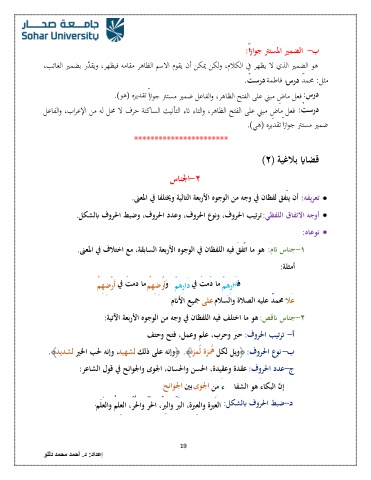 جامعة صحار
Sohar University
ب- الضمير المستتر جوازًا:
هو الضمير الذي لا يظهر في الكلام، ولكن يمكن أن يقوم الاسم الظاهر مقامه فيظهر، ويقدّر بضمير الغائب،
مثل: محمدٌ درس، فاطمة درستْ.
درس: فعل ماض مبني على الفتح الظاهر، والفاعل ضمير مستتر جوازًا تقديره (هو).
درستْ: فعل ماضٍ مبني على الفتح الظاهر، والتاء تاء التأنيث الساكنة حرف لا محل له من الإعراب، والفاعل
ضمير مستتر جوازًا تقديره (هي).
***********************
قضايا بلاغية (٢)
٢-الجناس
• تعريفه: أن يتّفق لفظان في وجه من الوجوه الأربعة التالية ويختلفا في المعنى.
• أوجه الاتفاق اللفظي: ترتيب الحروف، ونوع الحروف، وعدد الحروف، وضبط الحروف بالشكل.
• نوعاه:
١-جناس تام: هو ما اتّفق فيه اللفظان في الوجوه الأربعة السابقة، مع اختلاف في المعنى.
أمثلة:
فدارِهم ما دمتَ في دارهمْ وأرضِهمْ ما دمتَ في أرضِهمْ
علا محمدٌ عليه الصلاة والسلام على جميع الأنام
٢-جناس ناقص: هو ما اختلف فيه اللفظان في وجه من الوجوه الأربعة الآتية:
أ- ترتيب الحروف: حبر وحرب، علم وعمل، فتح وحتف
ب-نوع الحروف: ﴿ويل لكل هُمزة لُمزة﴾. ﴿وإنه على ذلك لشهيد، وإنه لحب الخير لشديد﴾.
ج-عدد الحروف: عقدة وعقيدة، الحسن والحسان، الجوى والجوانح في قول الشاعر:
إنّ البكاء هو الشفا ء من الجوى بين الجوانح
د-ضبط الحروف بالشكل: العَبرة والعِبرة، البَرّ والبِرّ، الحَرّ والحُرّ، العِلمُ والعَلَم.
19
إعداد: د. أحمد محمد دللو